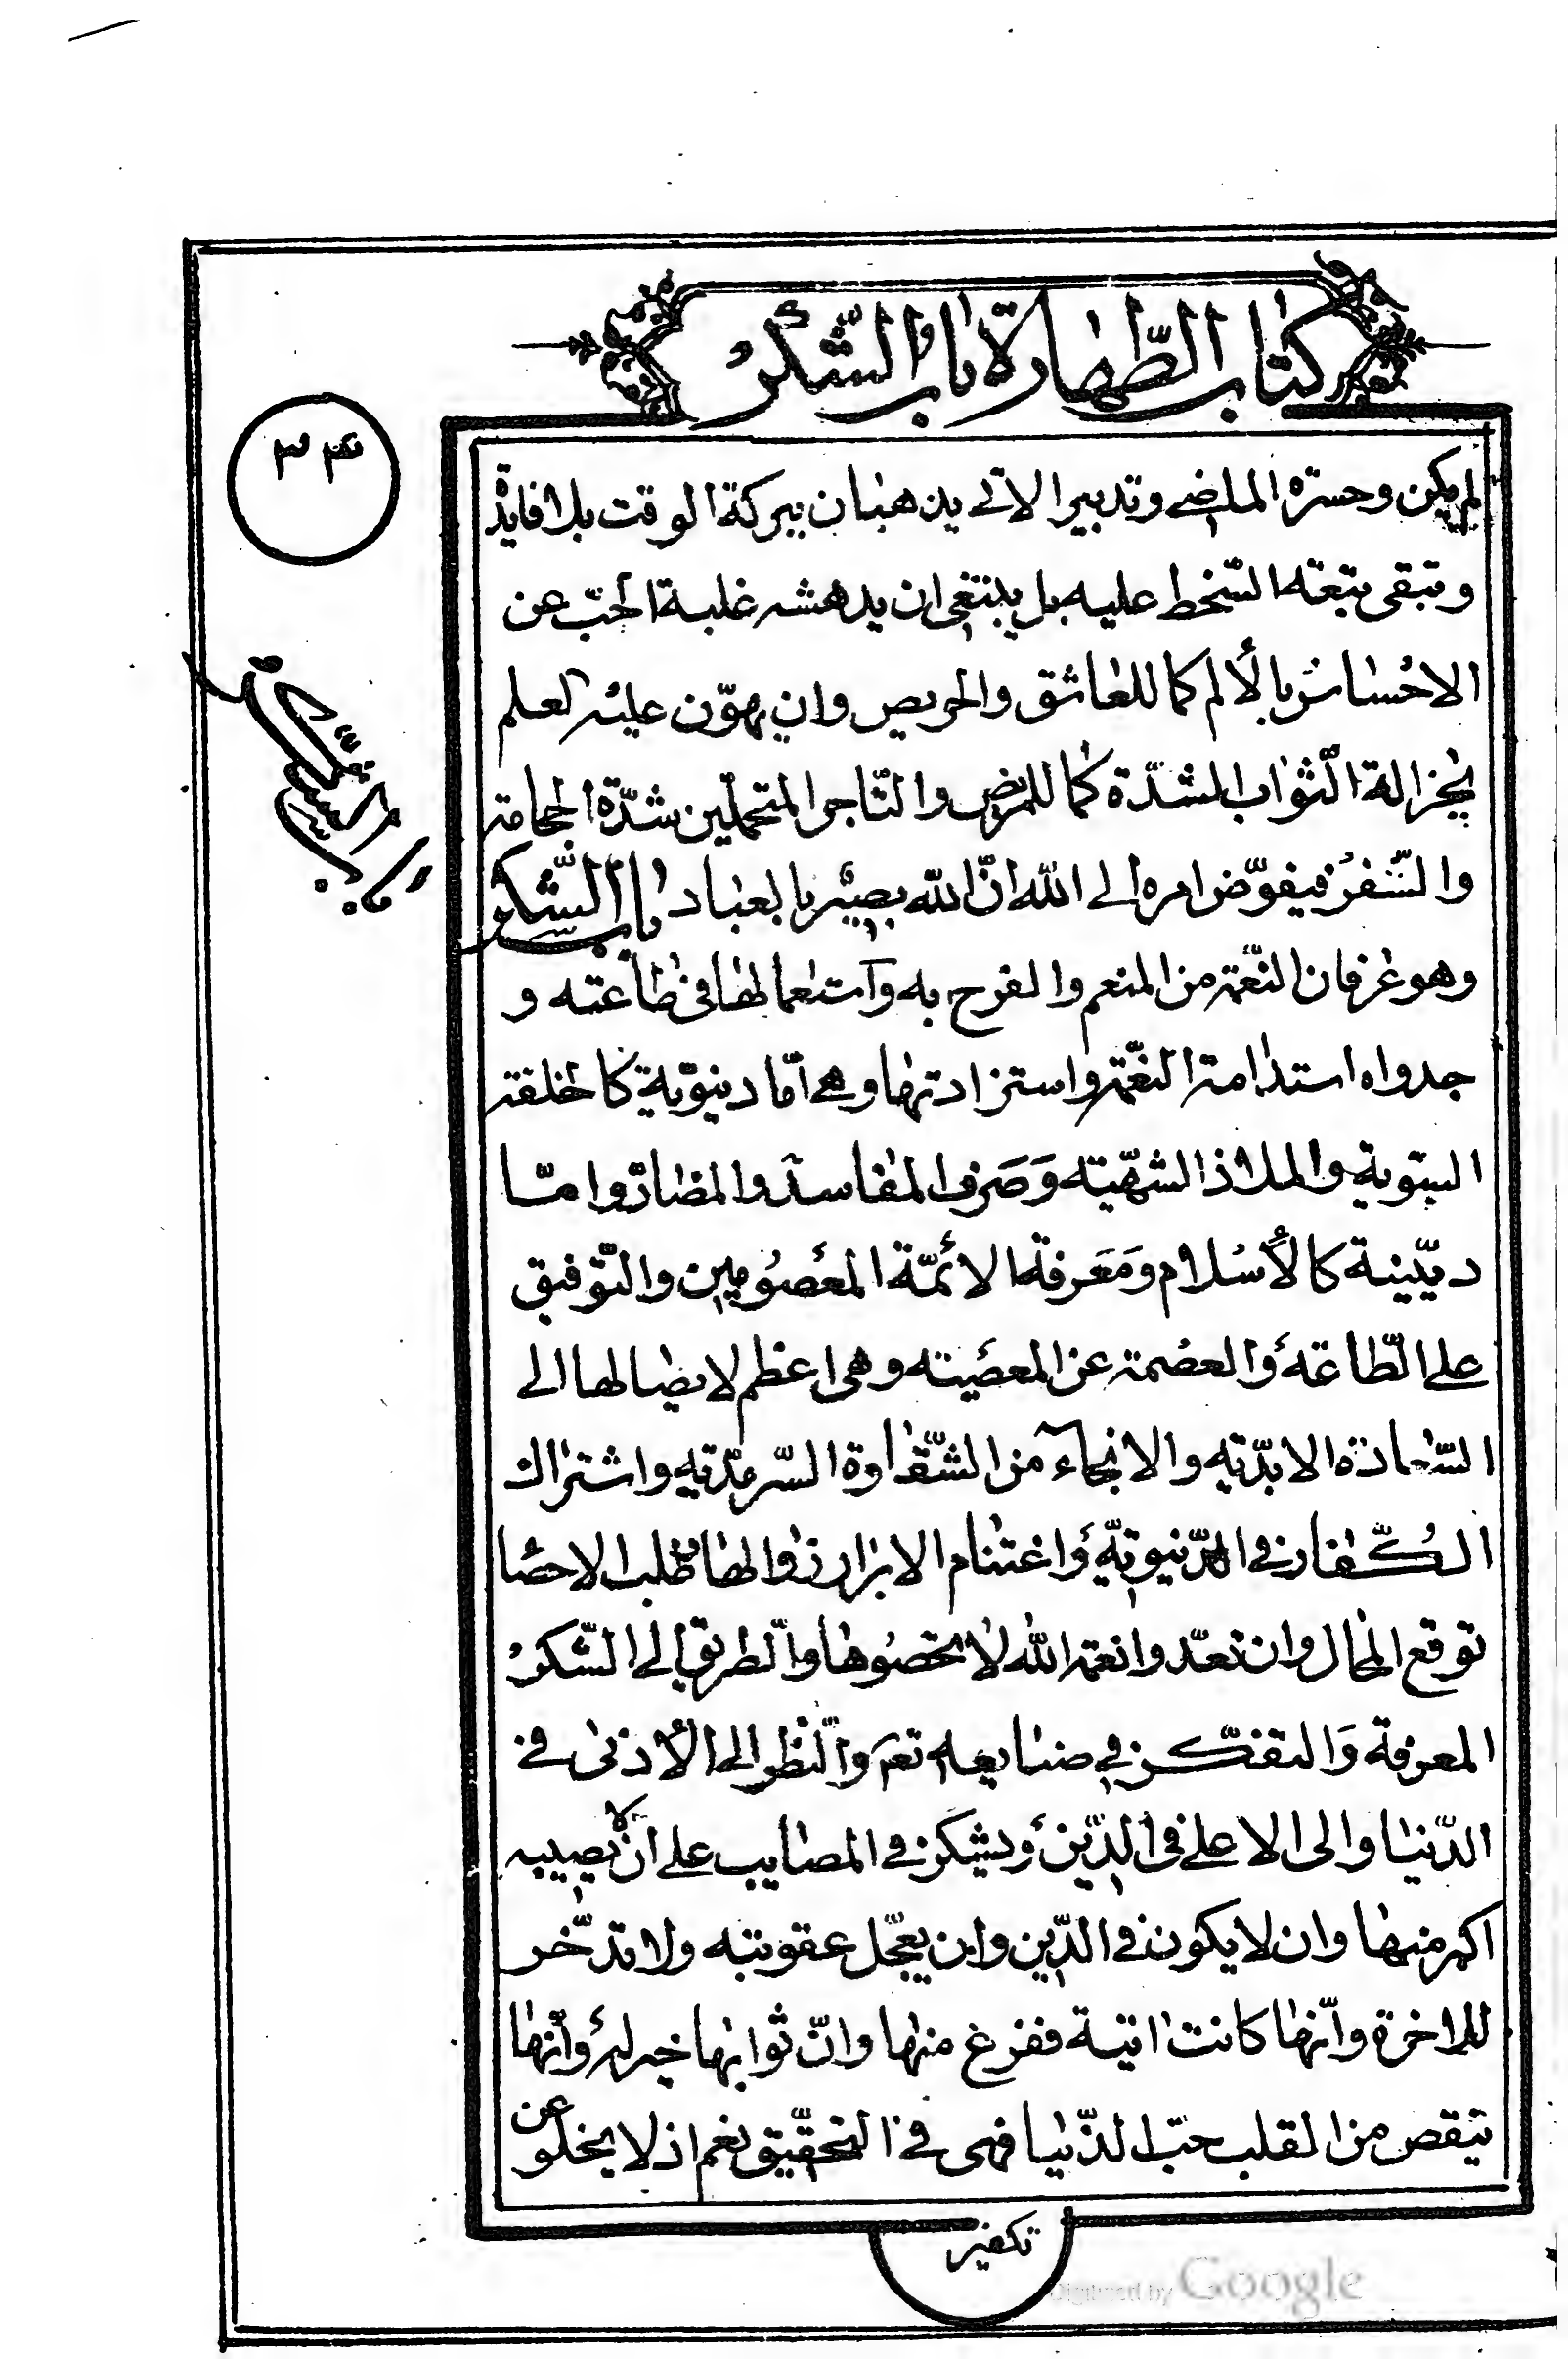 كتاب الطّهارة باب الشّكر
٣٤
لم يكن وحسرة الماضے وتدبير الاتے يذهبان ببركة الوقت بلا فايدة
وتبقى تبعة السّخط عليه بل ينبغى ان يدهشه غلبة الحبّ عن
الاحساس بالألم كما للعاشق والحريص وان يهوّن عليه العلم
بجزالة الثّواب الشدّة كما للمريض والتّاجر المتحملين شدّة الحجامة
والسّفر فيفوّض امره الے الله انّ الله بصير بالعباد باب الشّكر
باب الشّكر
وهو عرفان النّعمة من المنعم والفرح به واستعمالها فى طاعته و
جدواه استدامة النّعمة واستزادتها وهے امّا دنيويّة كالخلقة
السّوية والملاذ الشهيّة وَصَرف المفاسد والمضارّ وامّا
دينيّة كالأسلام وَمَعَرفة الأئمّة المعصُومين والتّوفيق
علے الطّاعة والعصمة عن المعصية وهى اعظم لايصالها الے
السّعادة الابديّة والانجاء من الشّقاوة السّرمديّة واشتراك
الكُفّار فے الدّنيويّة وَاغتنام الابرار زوالها وطلب الاحصا
توقع المحال وان تعدّوا نعمة الله لا تحصُوها والطريق الے الشّكر
المعرفة وَالتفكّر فے صنايعه تعم والنّظر الے الأدنى فے
الدّنيا والى الاعلے فى الدّين ويشكر فے المصايب علے ان لا يصيبه
اكبر منها وان لا يكون فے الدّين وان يعجّل عقوبته ولا تدّخر
للاخرة وانّها كانت اتية ففرغ منها وانّ ثوابها خير له وأنّها
تنقص من القلب حبّ الدّنيا فهى فے التحقيق نعم اذ لا يخلو عن
تكفير
Digitized by Google